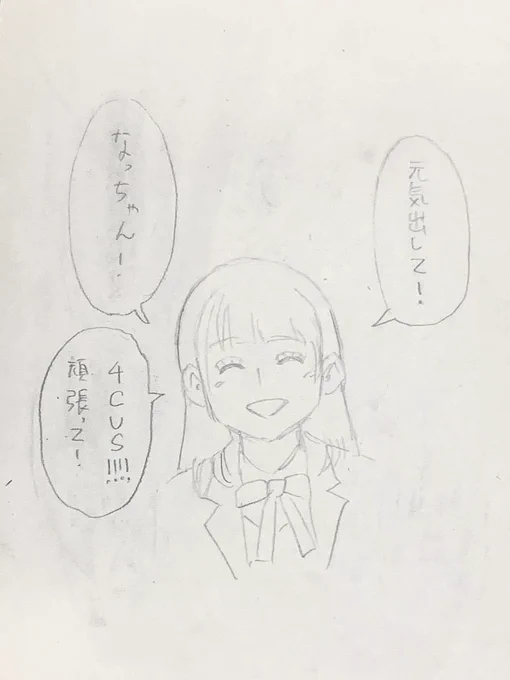 元気出して!
なっちゃんー!
4CUS!!!!
頑張って!